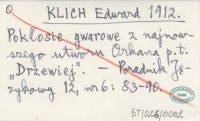 KLICH Edward 1912.
Pokłosie gwarowe z najnow-
szego utworu Orkana p.t.
„Drzewiej". - Poradnik Ję-
zykowy 12, nr 6: 83-90.